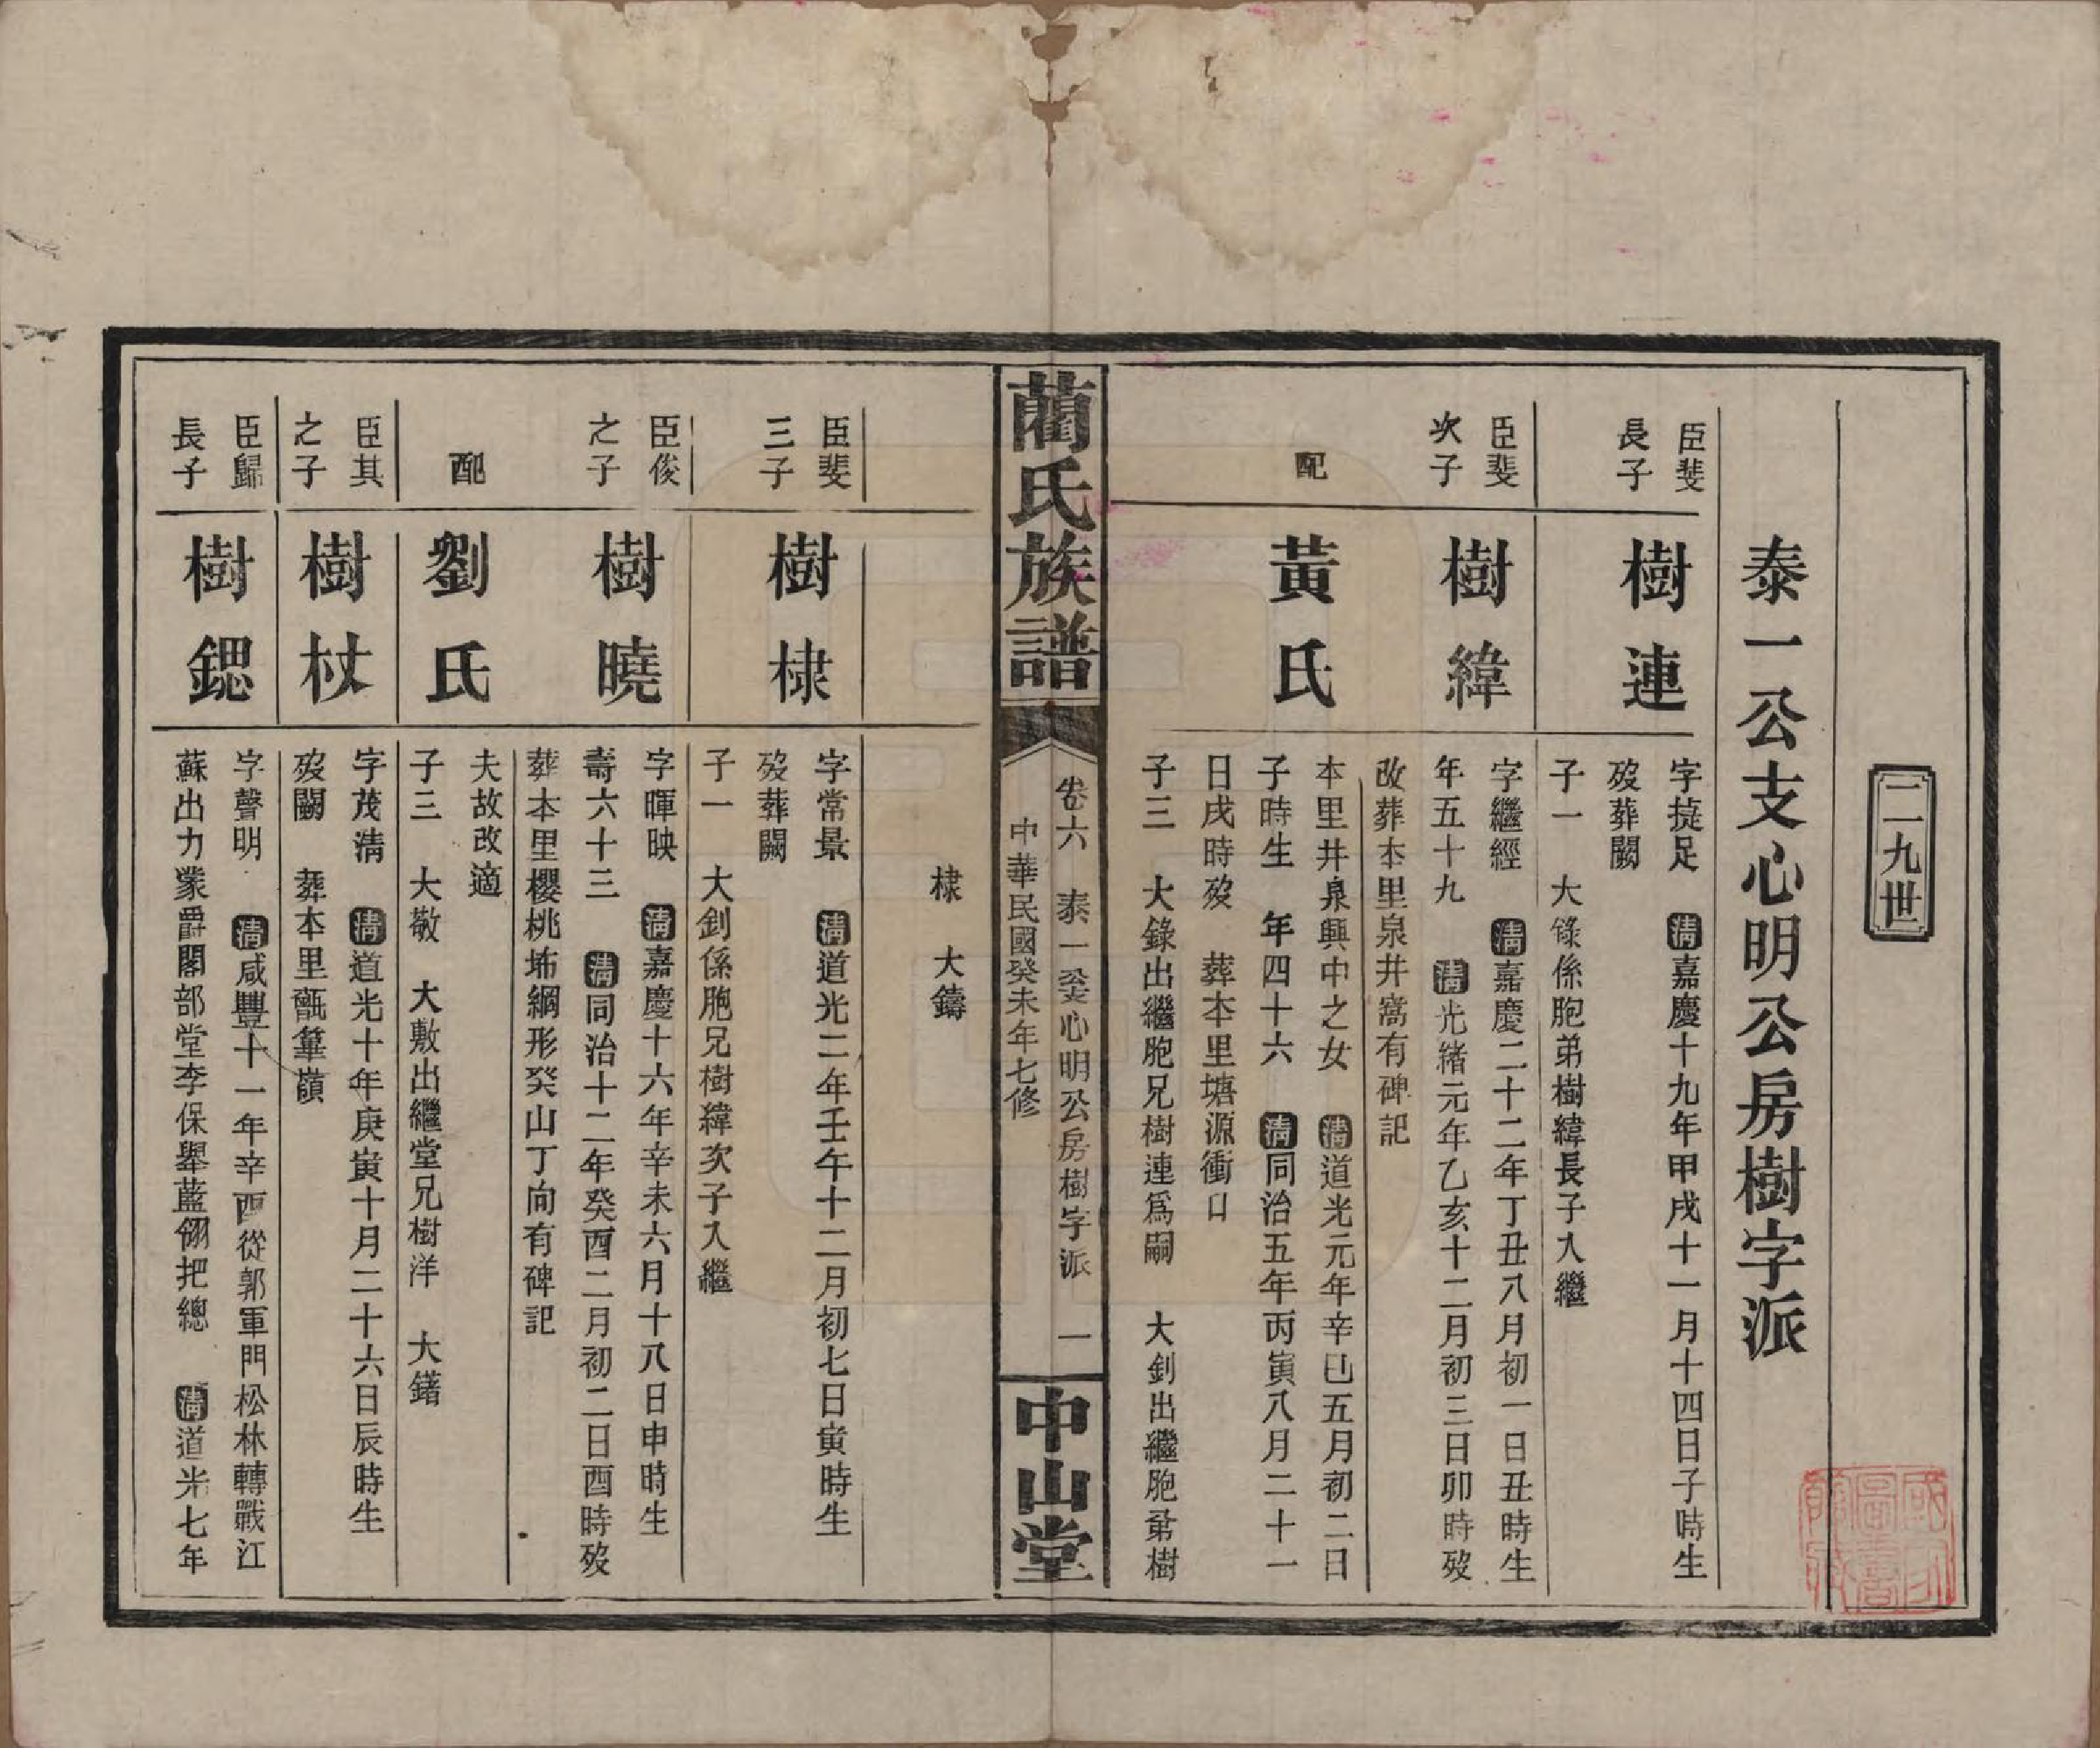 二九世
泰一公支心明公房樹字派
臣斐長子
樹連
字㨗足 清嘉慶十九年甲戌十一月十四日子時生
歿葬闕
子一 大鋒係胞弟樹緯長子入繼
臣斐次子
樹緯
字繼經 清嘉慶二十二年丁丑八月初一日丑時生
年五十九 清光緒元年乙亥十二月初三日卯時歿
改葬本里泉井窩有碑記
配
黃氏
本里井泉興中之女 清道光元年辛巳五月初二日
子時生 年四十六 清同治五年丙寅八月二十一
日戌時歿 葬本里塘源衝口
子三 大錄出繼胞兄樹連爲嗣 大釗出繼胞弟樹
藺氏族譜
卷六 泰一公支心明公房樹字派 一
中華民國癸未年七修
中山堂
棣 大鑄
臣斐三子
樹棣
字常景 清道光二年壬午十二月初七日寅時生
歿葬闕
子一 大釗係胞兄樹緯次子入繼
臣俊之子
樹曉
字暉映 清嘉慶十六年辛未六月十八日申時生
壽六十三 清同治十二年癸酉二月初二日酉時歿
葬本里櫻桃坳綱形癸山丁向有碑記
配
劉氏
夫故改適
子三 大敬 大敷出繼堂兄樹洋 大鐯
臣其之子
樹杖
字茂淸 清道光十年庚寅十月二十六日辰時生
歿闕 葬本里甑箄嶺
臣歸長子
樹鍶
字聲明 清咸豐十一年辛酉從郭軍門松林轉戰江
蘇出力蒙爵閣部堂李保舉藍翎把總 清道光七年